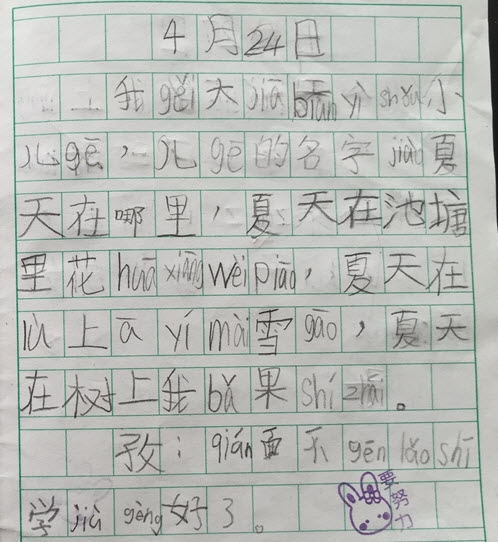 4月24日
我gěi大jiābiānyìshǒu小
儿gē，儿gē的名字jiào夏
天在哪里，夏天在池塘
里花huāxiāngwèipiāo，夏天在
lù上āyímài雪gāo，夏天
在树上我bǎ果shízhāi。
孜：qián面不gēnlǎoshī
学jiùgèng好了。
要努力